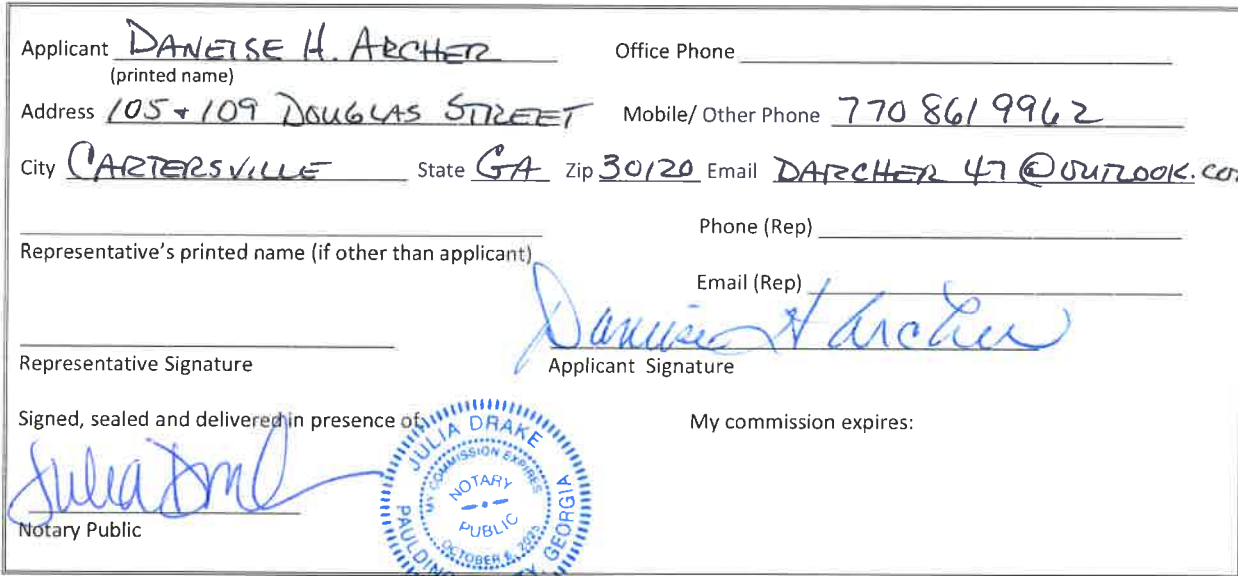 Applicant DANEISE H. ARCHER Office Phone
(printed name)
Address 105 + 109 DOUGLAS STREET Mobile/ Other Phone 770 861 9962
City CARTERSVILLE State GA Zip 30120 Email DARCHER 47 @OUTLOOK.CO
Phone (Rep)
Representative's printed name (if other than applicant)
Email (Rep)
Daneise H Archer
Representative Signature Applicant Signature
Signed, sealed and delivered in presence of: My commission expires:
Julia Drake
Notary Public
JULIA DRAKE
MY COMMISSION EXPIRES
NOTARY
PUBLIC
OCTOBER
GEORGIA